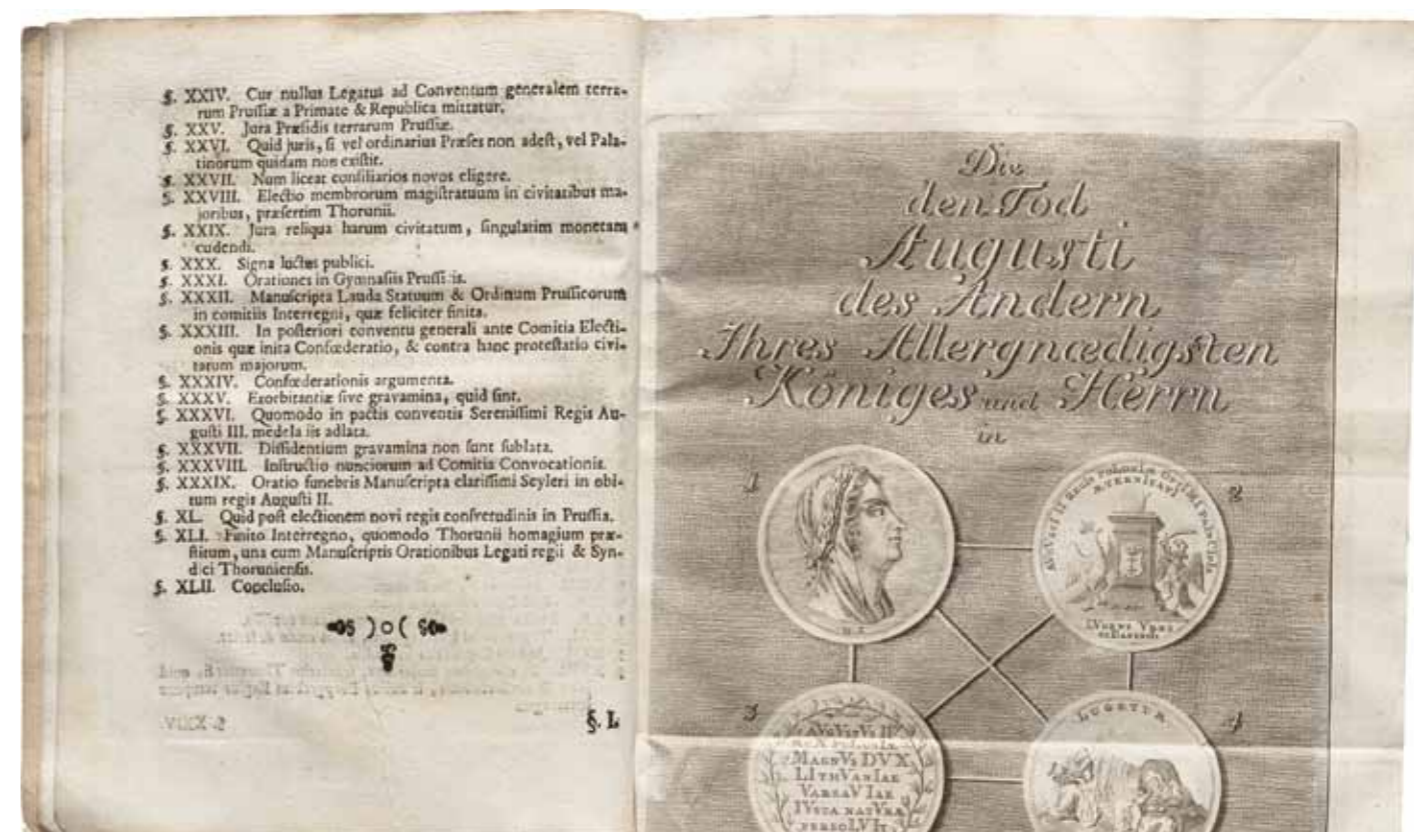 §. XXIV. Cur nullus Legatus ad Conventum generalem terra-
rum Prussiæ a Primate & Republica mittatur.
§. XXV. Jura Præsidis terrarum Prussiæ.
§. XXVI. Quid juris, si vel ordinarius Præses non adest, vel Pala-
tinorum quidam non existit.
§. XXVII. Num liceat consiliarios novos eligere.
§. XXVIII. Electio membrorum magistratuum in civitatibus ma-
joribus, præsertim Thorunii.
§. XXIX. Jura reliqua harum civitatum, singulatim monetam
cudendi.
§. XXX. Signa luctus publici.
§. XXXI. Orationes in Gymnasiis
§. XXXII. Manuscripta Lauda Statuum & Ordinum Prussicorum
in comitiis Interregni, quæ feliciter finita.
§. XXXIII. In posteriori conventu generali ante Comitia Electi-
onis quæ inita Confœderatio, & contra hanc protestatio civi-
tatum majorum.
§. XXXIV. Confœderationis argumenta.
§. XXXV. Exorbitantiæ sive gravamina, quid sint.
§. XXXVI. Quomodo in pactis conventis Serenissimi Regis Au-
gusti III. medela iis adlata.
§. XXXVII. Dissidentium gravamina non sunt sublata.
§. XXXVIII. Instructio nunciorum ad Comitia Convocationis.
§. XXXIX. Oratio funebris Manuscripta clarissimi Seyleri in obi-
tum regis Augusti II.
§. XL. Quid post electionem novi regis consvetudinis in Prussia.
§. XLI. Finito Interregno, quomodo Thorunii homagium præ-
stitum, una cum Manuscriptis Orationibus Legati regii & Syn-
dici Thoruniensis.
§. XLII. Conclusio.
§. I.
Die
den Tod
Augusti
des Andern
Ihres Allergnædigsten
Königes und Herrn
in
1
2
ÆTERNITATI
LVGENS VRBS
GEDANENSIS
3
AVGVSTVS II
REX POLONIÆ
MAGNVS DVX
LITHVANIAE
VARSAVIAE
IVSTA NATVRÆ
PERSOLVIT
4
LVGETVR